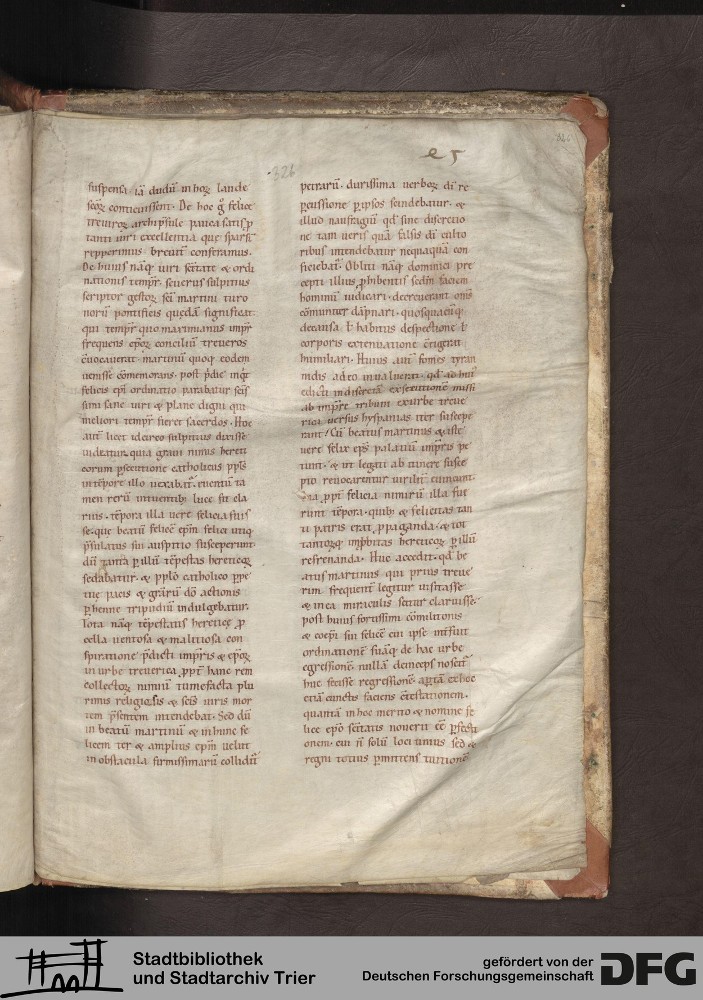 e 5
326
suspensa iā dudū in hoꝝ laude
seqꝫ conticuissent. De hoc g̊ felice
treuiroꝝ archip̄sule pauca satis p̱
tanti uiri excellentia que sparsī
repperimus breuit̄ conseramus.
De huius nāq uiri sc̄itate & ordi
nationis temp̄r seuerus sulpitius
scriptor gestoꝝ sc̄i martini turo
noꝝ pontificis quedā significat:
qui temp̄r quo maximianus imp̄r
frequens ep̄oꝝ conciliū treueros
cōuocauerat. martinū quoqꝫ eodem
uenisse cōmemorans. post p̄die inqt
felicis ep̄i ordinatio parabatur sc̄is
simi sane uiri & plane digni qui
meliori temp̄r fieret sacerdos. Hoc
aut̄ licet idcirco sulpitius dixisse
uideatur quia graui nimis hereti
corum p̱secutione catholicus pp̄ls
in tēpore illo uexabat̄. euentu ta
men rerū intuentibꝫ luce fit cla
rius. tēpora illa uere felicia fuis
se. que beatū felicē ep̄m felici utiq
p̄sulatus sui auspitio susceperunt.
dū tanta p̱ illū tēpestas hereticoꝝ
sedabatur. & pp̄lo catholico p̱pe
tue pacis & grārū dō actionis
p̱henne tripudiū indulgebatur.
Tota nāq tēpestatis heretice p̱
cella uentosa & malitiosa con
spiratione p̄dicti imp̄ris & ep̄oꝝ
in urbe treuerica ppt̄ hanc rem
collectoꝝ nimiū tumefacta plu
rimis religiosis & sc̄is uiris mor
tem p̄sentem intendebat. Sed dū
in beatū martinū & in hunc fe
licem ter & amplius ep̄m uelut
in obstacula firmissimarū collidit̄
petrarū. durissima uerboꝝ dī re
p̱cussione p̱ ipsos scindebatur. &
illud naufragiū qd̄ sine discretio
ne tam ueris quā falsis dī culto
ribus intendebatur nequaquā con
ficiebat̄. Obliti nāq dominici pre
cepti illius p̱hibentis sedm̄ faciem
hominū iudicari. decreuerant om̄s
cōmunit̄ dāpnari. quosqua cūq
de causa. ł habitus despectione ł
corporis extenuatione ctigerat
humiliari. Huius aut̄ fomes tyran
nidis adeo inualuerat. qd̄ ad hui
edicti indiscretā exsecutionē missi
ab imp̄re tribuni ex urbe treue
rica uersus hyspanias iter suscepe
runt. Cū beatus martinus & iste
uere felix ep̄s palatiū imp̄ris pe
tunt. & ut legati ab itinere susce
pto reuocarentur uirilit̄
ppt̄ felicia nimirū illa fue
runt tēpora. quibꝫ & felicitas tan
ti patris erat p̱paganda. & tot
tantorqꝫ imp̱bitas hereticoꝝ p̱ illū
refrenanda. Huc accedit. qd̄ be
atus martinus qui prius treue
rim frequent̄ legitur uisitasse
& in ea miraculis sc̄itur claruisse.
post huius fortissimi cōmilitonis
& coep̄i sui felicē cui ipse int̄fuit
ordinationē suāq de hac urbe
egressionē. nullā deinceps noscit̄
huc fecisse regressionē. aptā ex hoc
etiā cunctis faciens ctestationem.
quantā in hoc merito & nomine fe
lice ep̄o sc̄itatis nouerit eē p̱fecti
onem. cui n̄ solū loci unius sed &
regni totius p̱mittens tuitionē
Stadtbibliothek
und Stadtarchiv Trier
gefördert von der
Deutschen Forschungsgemeinschaft
DFG